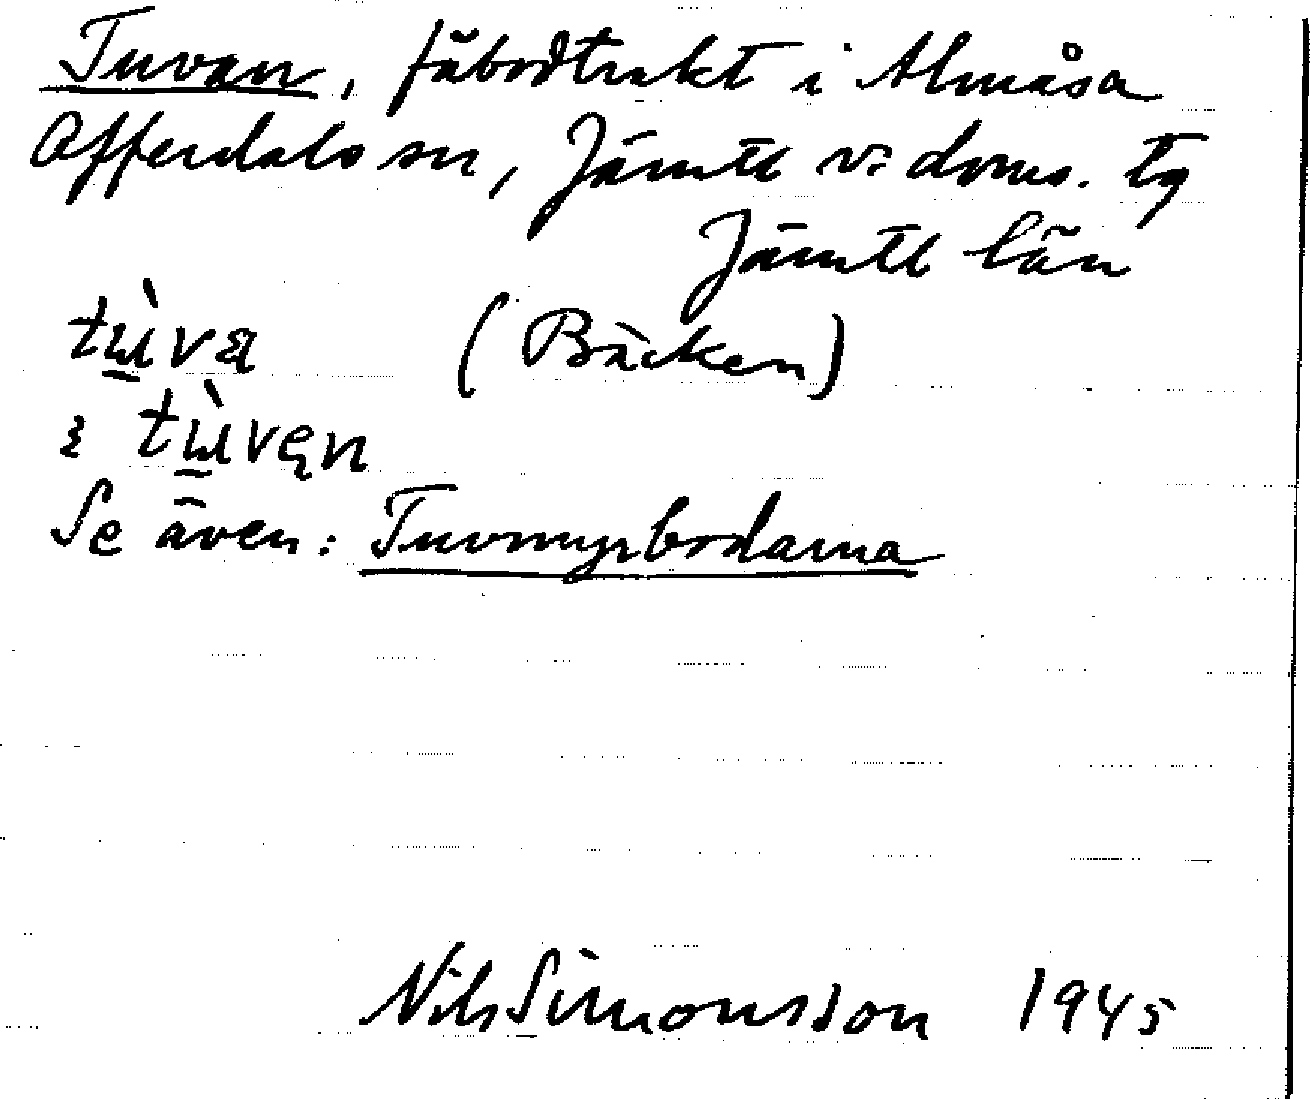 Tuvan, fäbodtrakt i Almåsa
Offerdals sn, Jämtl v: doms. tg
Jämtl län
tɯ̲̀va (Bäcken)
ɩ tɯ̲̀vęn
Se även: Tuvmyrbodarna
Nils Simonsson 1945